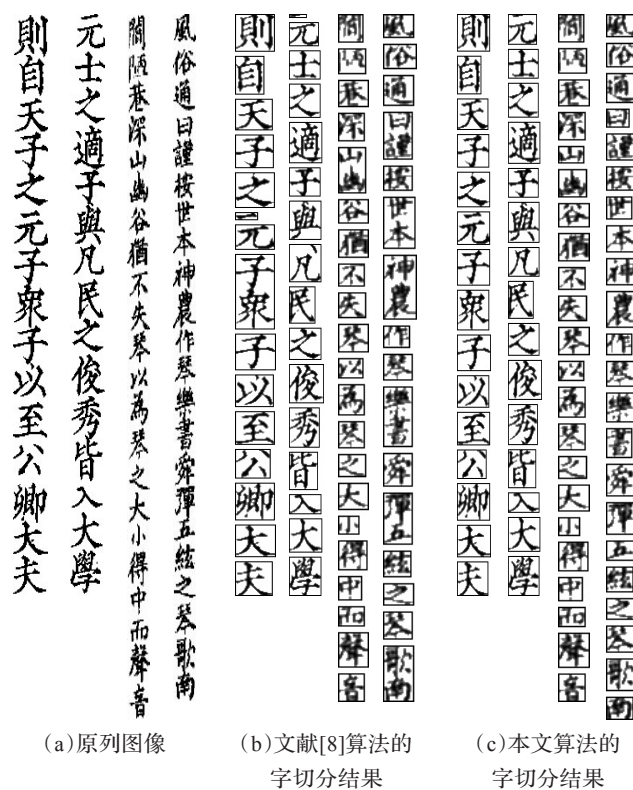 則自天子之元子衆子以至公卿大夫
元士之適子與凡民之俊秀皆入大學
閭陋巷深山幽谷猶不失琴以為琴之大小得中而聲音
風俗通曰謹按世本神農作琴樂書舜彈五絃之琴歌南
(a)原列图像
則自天子之元子衆子以至公卿大夫
元士之適子與凡民之俊秀皆入大學
閭陋巷深山幽谷猶不失琴以為琴之大小得中而聲音
風俗通曰謹按世本神農作琴樂書舜彈五絃之琴歌南
(b)文献[8]算法的
字切分结果
則自天子之元子衆子以至公卿大夫
元士之適子與凡民之俊秀皆入大學
閭陋巷深山幽谷猶不失琴以為琴之大小得中而聲音
風俗通曰謹按世本神農作琴樂書舜彈五絃之琴歌南
(c)本文算法的
字切分结果